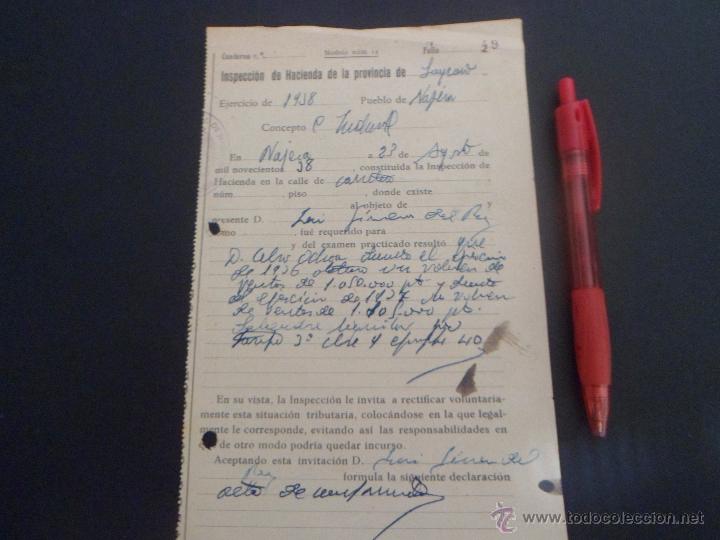 Cuaderno n.º Modelo núm. 12 Folio 29
Inspección de Hacienda de la provincia de
Ejercicio de 1938 Pueblo de Nájera
Concepto
En Nájera a 23 de Agosto de
mil novecientos 38, constituida la Inspección de
Hacienda en la calle de
núm. piso , donde existe
al objeto de y
presente D. Luis Jiménez del Rey
como , fué requerido para
y del examen practicado resultó que
D. Celso Ochoa durante el ejercicio
de 1936 obtuvo un volumen de
ventas de 1.050.000 pts y durante
el ejercicio de 1937 un volumen
de ventas de 1.105.000 pts.
por
tarifa 3ª clase 4 epígrafe 40
En su vista, la Inspección le invita a rectificar voluntaria-
mente esta situación tributaria, colocándose en la que legal-
mente le corresponde, evitando así las responsabilidades en
que de otro modo podría quedar incurso.
Aceptando esta invitación D. Luis Jiménez del
Rey formula la siguiente declaración
acta de conformidad
www.todocoleccion.net